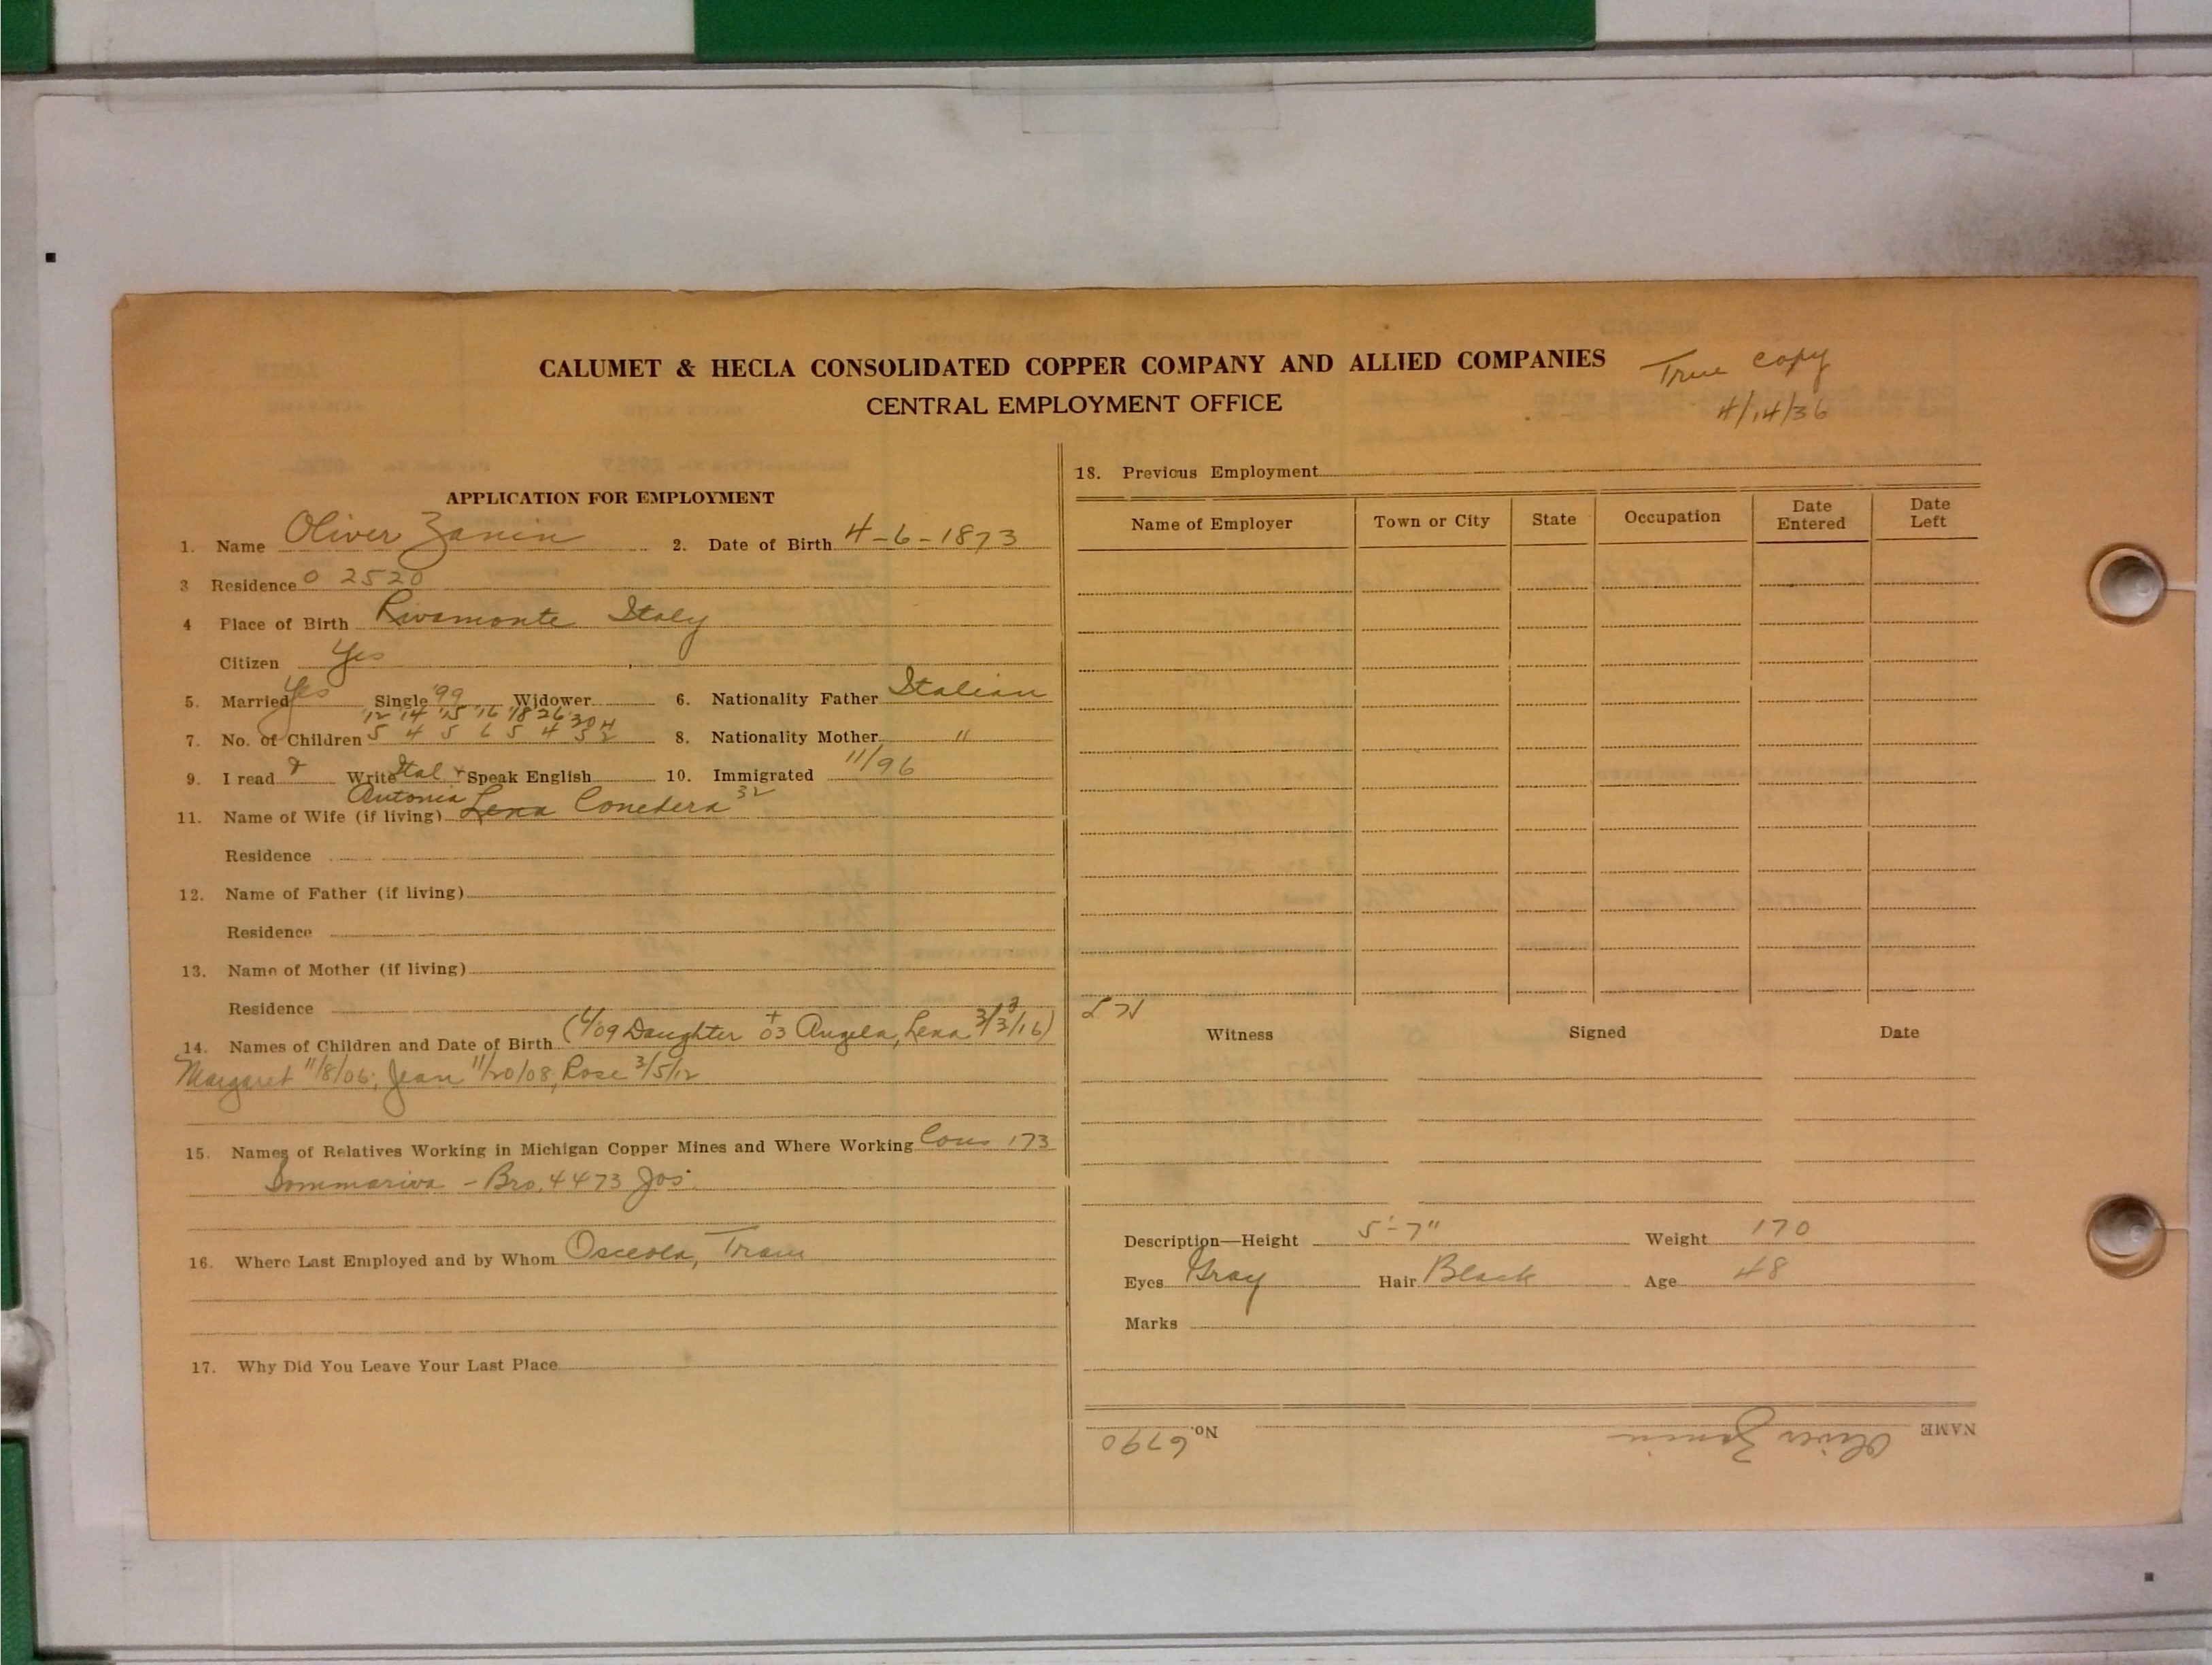 CALUMET & HECLA CONSOLIDATED COPPER COMPANY AND ALLIED COMPANIES True copy
CENTRAL EMPLOYMENT OFFICE 4/14/36
APPLICATION FOR EMPLOYMENT
1. Name Oliver Zanin 2. Date of Birth 4-6-1873
3 Residence O 2520
4 Place of Birth Rivamonte Italy
Citizen Yes
5. Married Yes Single '99 Widower 6. Nationality Father Italian
'12 '14 '15 '16 '18 26 30
7. No. of Children 5 4 5 6 5 4 3 2 8. Nationality Mother "
9. I read & Write Ital + Speak English 10. Immigrated 11/96
Antonia 32
11. Name of Wife (if living) Lena Conedera
Residence
12. Name of Father (if living)
Residence
13. Name of Mother (if living)
Residence
14. Names of Children and Date of Birth Daughter 03 Angela, Lena 3/3/16)
Margaret 11/8/06; Jean 11/20/08, Rose 3/5/12
15. Names of Relatives Working in Michigan Copper Mines and Where Working Cous 173
Sommariva - Bro. 4473 Jos.
16. Where Last Employed and by Whom Osceola, Tram
17. Why Did You Leave Your Last Place
18. Previous Employment
Name of Employer Town or City State Occupation Date Entered Date Left
Witness Signed Date
Description—Height 5'-7" Weight 170
Eyes Gray Hair Black Age 48
Marks
NAME Oliver Zanin No. 6790